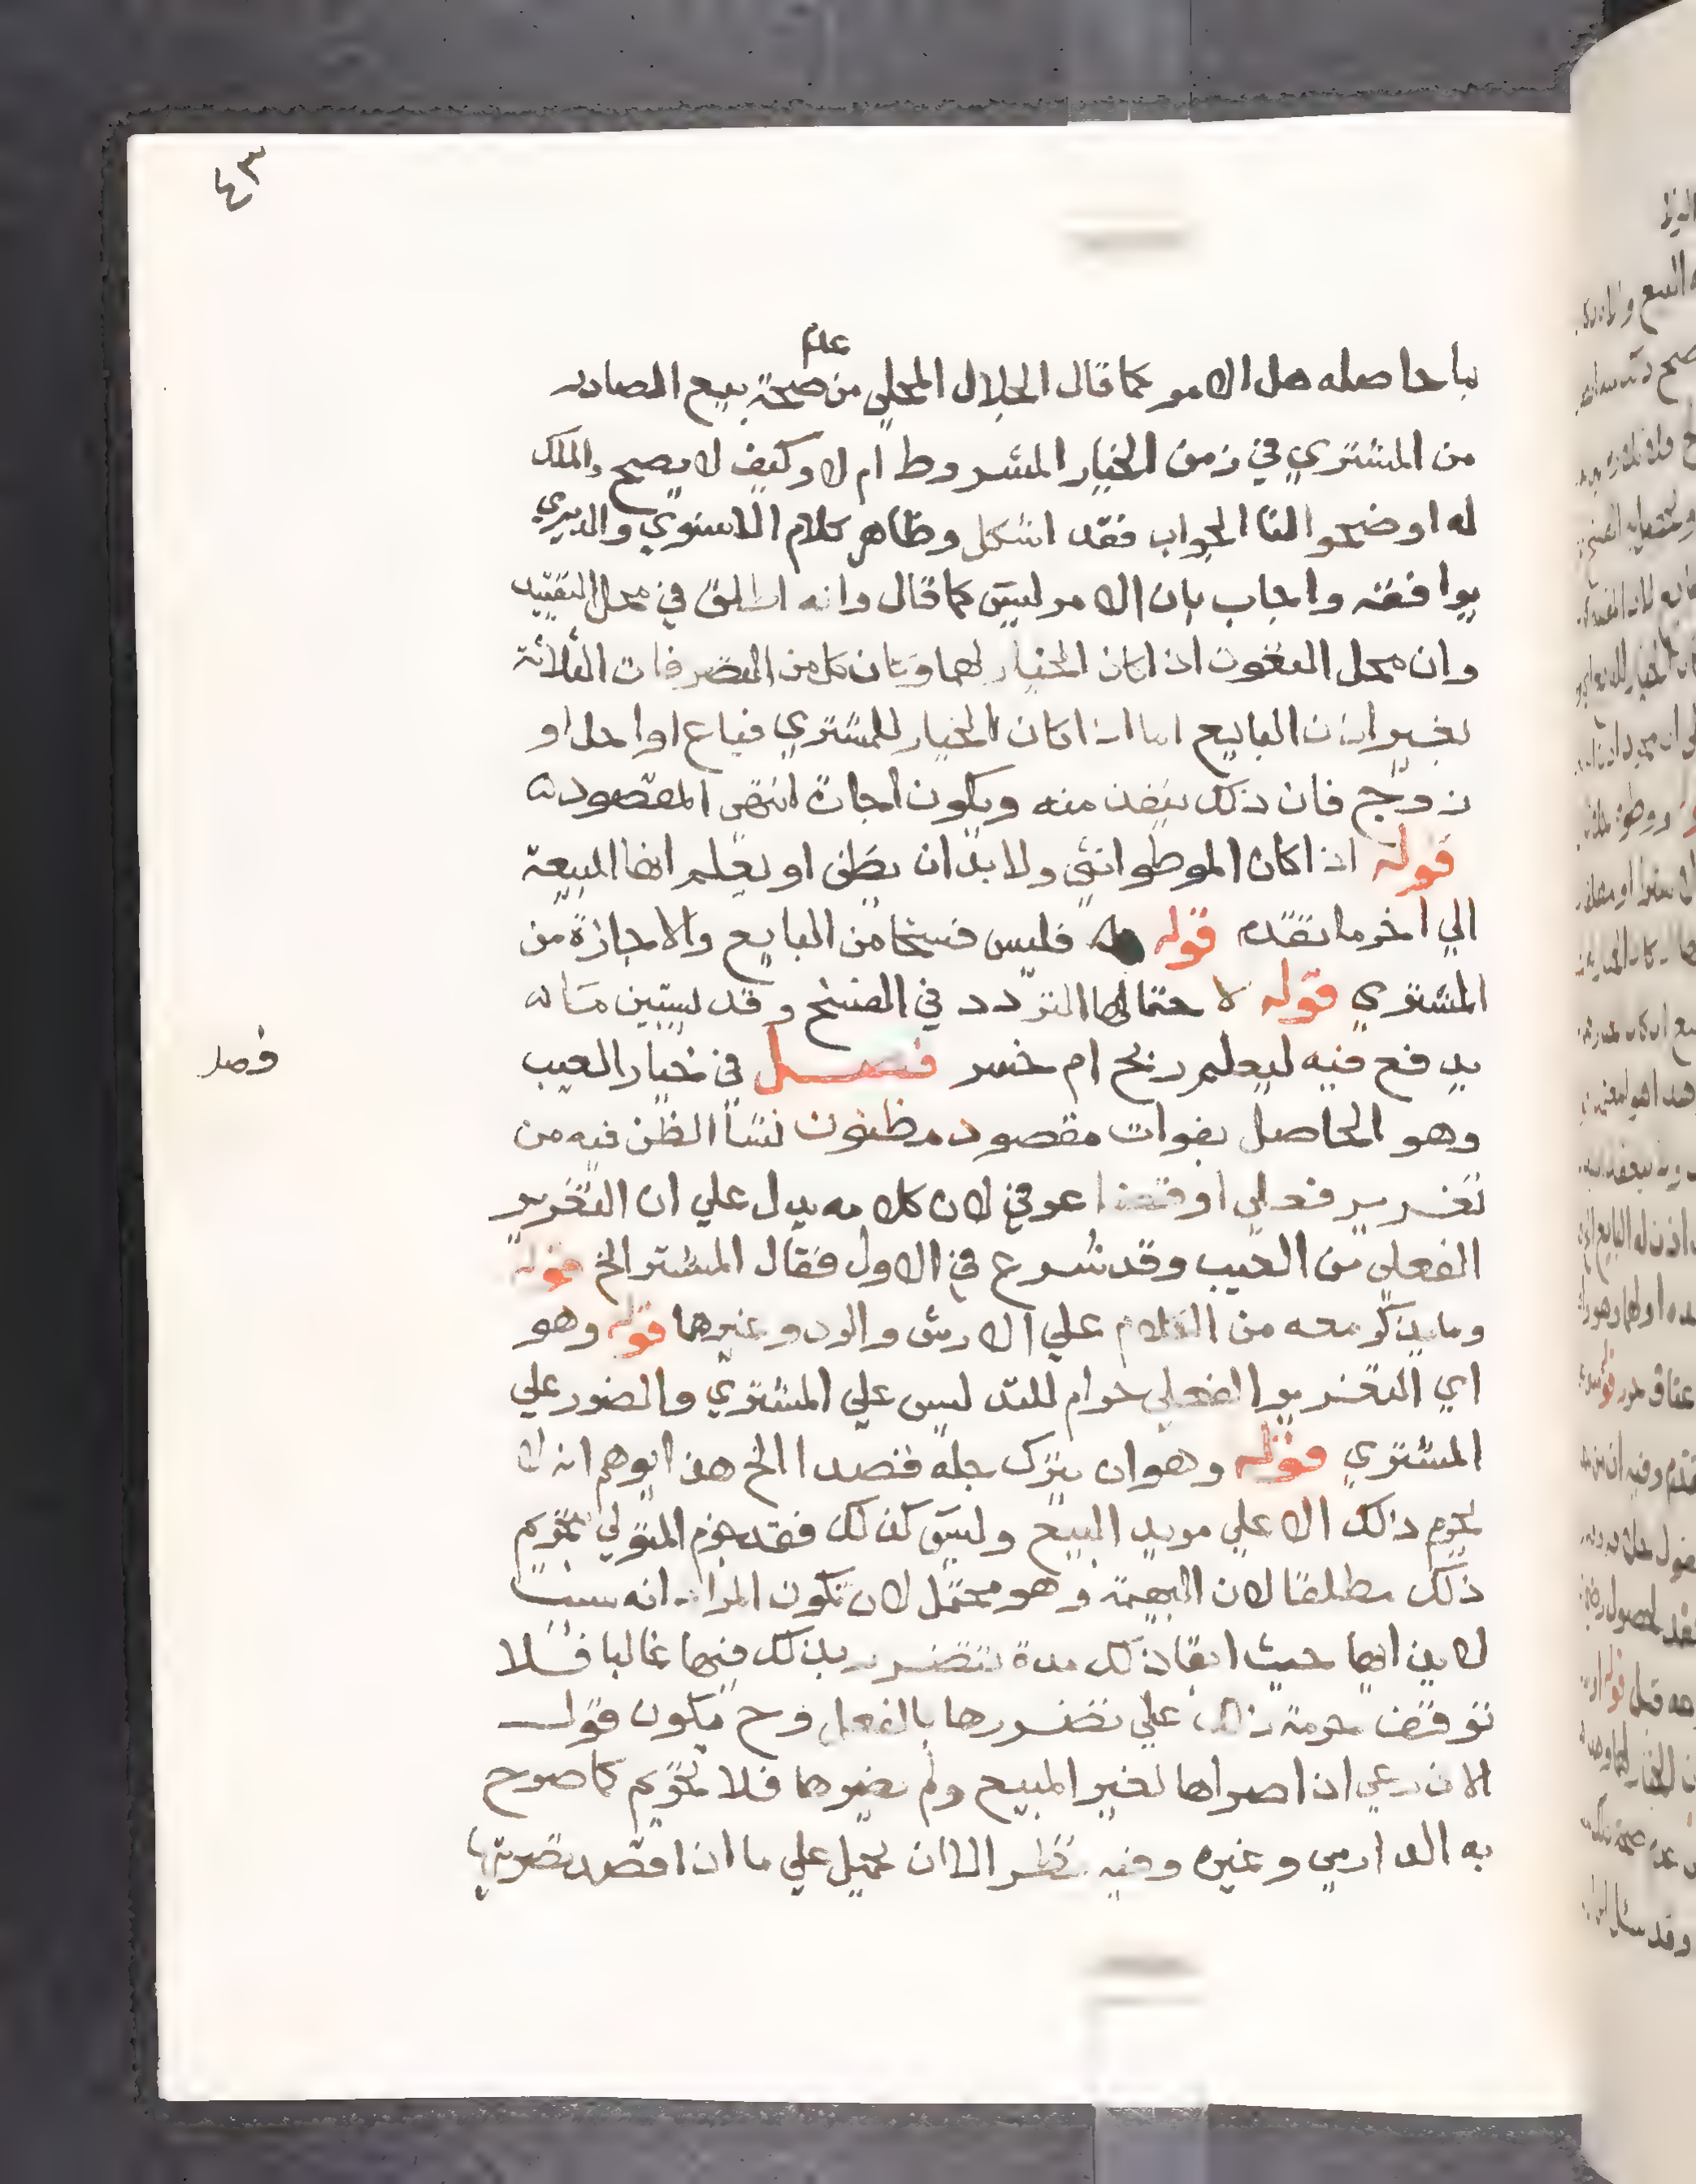 ٤٣
عدم
بما حاصله هل الامر كما قال الجلال المحلي من صحة بيع الصادر
من المشتري في زمن الخيار المشروط ام لا وكيف لا يصح والملك
له اوضحوا لنا الجواب فقد اشكل وظاهر كلام الاسنوي والدميري
يوافقه واجاب بان الامر ليس كما قال وانه اطلق في محل التقييد
وان محل النفوذ اذا كان الخيار لهما وكان كل من التصرفات الثلاثة
بغير اذن البايع اما اذا كان الخيار للمشتري فباع او احل او
زوج فان ذلك ينفذ منه ويكون اجازة انتهى المقصود منه
قوله اذا كان الموطو انثى ولا بد ان يظن او يعلم انها المبيعة
الي اخر ما تقدم قوله فليس فسخا من البايع والاجازة من
المشتري قوله لاحتمالها التردد في الفسخ وقد يستبين ماله
يدفع فيه ليعلم ربح ام خسر فصل في خيار العيب
فصل
وهو الحاصل بفوات مقصود مظنون نشأ الظن فيه من
تغرير فعلي او قضا عرفي لان كلامه يدل علي ان التغرير
الفعلي من العيب وقد شرع في الاول فقال المشتر الخ قوله
وما يذكر معه من الكلام علي الارش والرد وغيرهما قوله وهو
اي التغرير الفعلي حرام للتدليس علي المشتري والضرر علي
المشتري قوله وهو ان يترك حلبه قصدا الخ هذا يوهم انه لا
يحرم ذلك الا علي مريد البيع وليس كذلك فقد جزم المتولي بتحريم
ذلك مطلقا لان البهيمة وهو محتمل لان تكون المراد انه سبب
لايذائها حيث ابقا ذلك مدة تتضرر بذلك فيها غالبا فلا
توقف حرمة ذلك علي تضررها بالفعل وح يكون قول
الاذرعي اذا صراها لغير المبيع ولم يضرها فلا تحريم كما صرح
به الدارمي وغيره وفيه نظر الا ان يحمل علي ما اذا قصد تضرتها